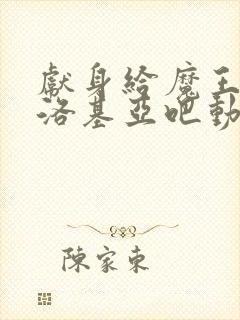 獻身給魔王
洛基亞吧動
陳家東